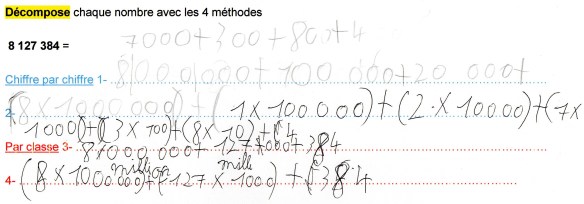 Décompose chaque nombre avec les 4 méthodes
7000+300+800+4
8 127 384 =
Chiffre par chiffre 1- 8000000+100 000+20 000+
2- (8×1000000)+(1×100000)+(2×10000)+(7×
1000)+(3×100)+(8×10)+(4
Par classe 3- 8000 000+127000+384
million mille
4- (8×1000000)+(127×1000)+(384